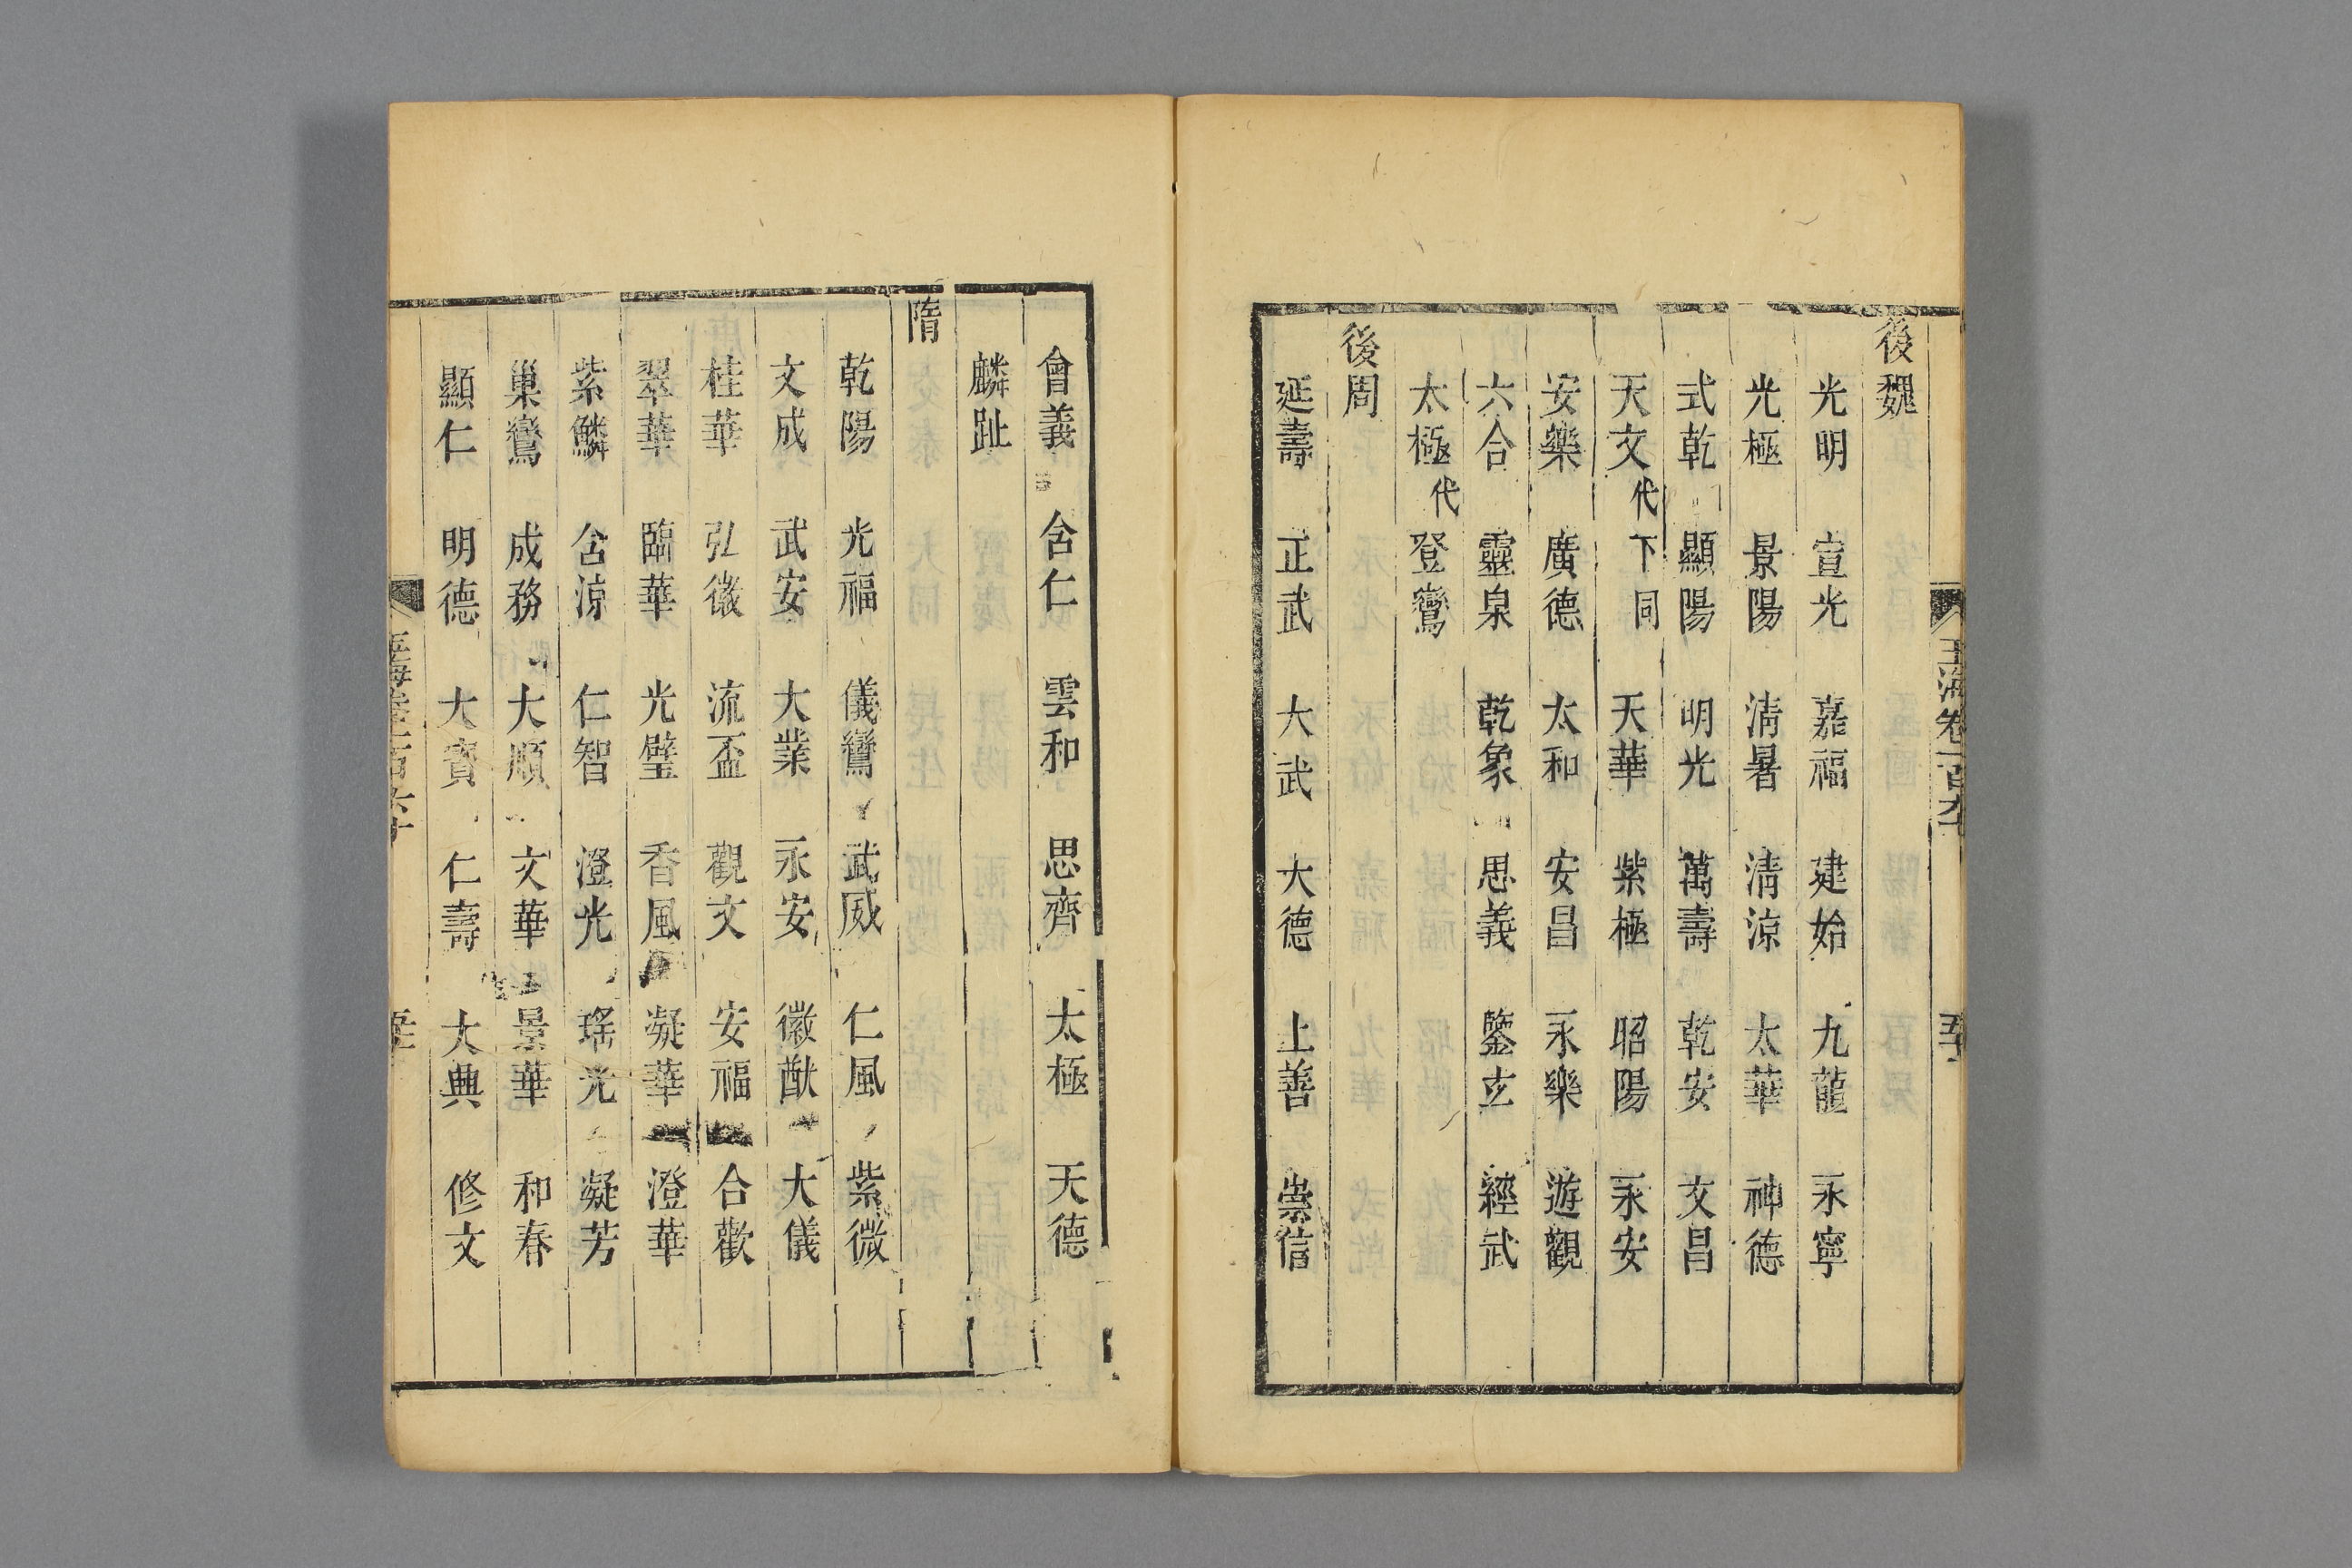 玉海卷一百六十
後魏
光明 宣光 嘉福 建始 九龍 永寧
光極 景陽 清暑 清涼 太華 神德
式乾 顯陽 明光 萬壽 乾安 文昌
天文代下同 天華 紫極 昭陽 永安
安樂 廣德 太和 安昌 永樂 遊觀
六合 靈泉 乾象 思義 鑒玄 經武
太極代 登鸞
後周
延壽 正武 大武 大德 上善 崇信
會義 含仁 雲和 思齊 太極 天德
麟趾
隋
乾陽 光福 儀鸞 武威 仁風 紫微
文成 武安 大業 永安 徽猷 大儀
桂華 弘徽 流盃 觀文 安福 合歡
翠華 臨華 光璧 香風 凝華 澄華
紫鱗 含涼 仁智 澄光 瑤光 凝芳
巢鸞 成務 大順 文華 景華 和春
顯仁 明德 大寶 仁壽 大典 修文